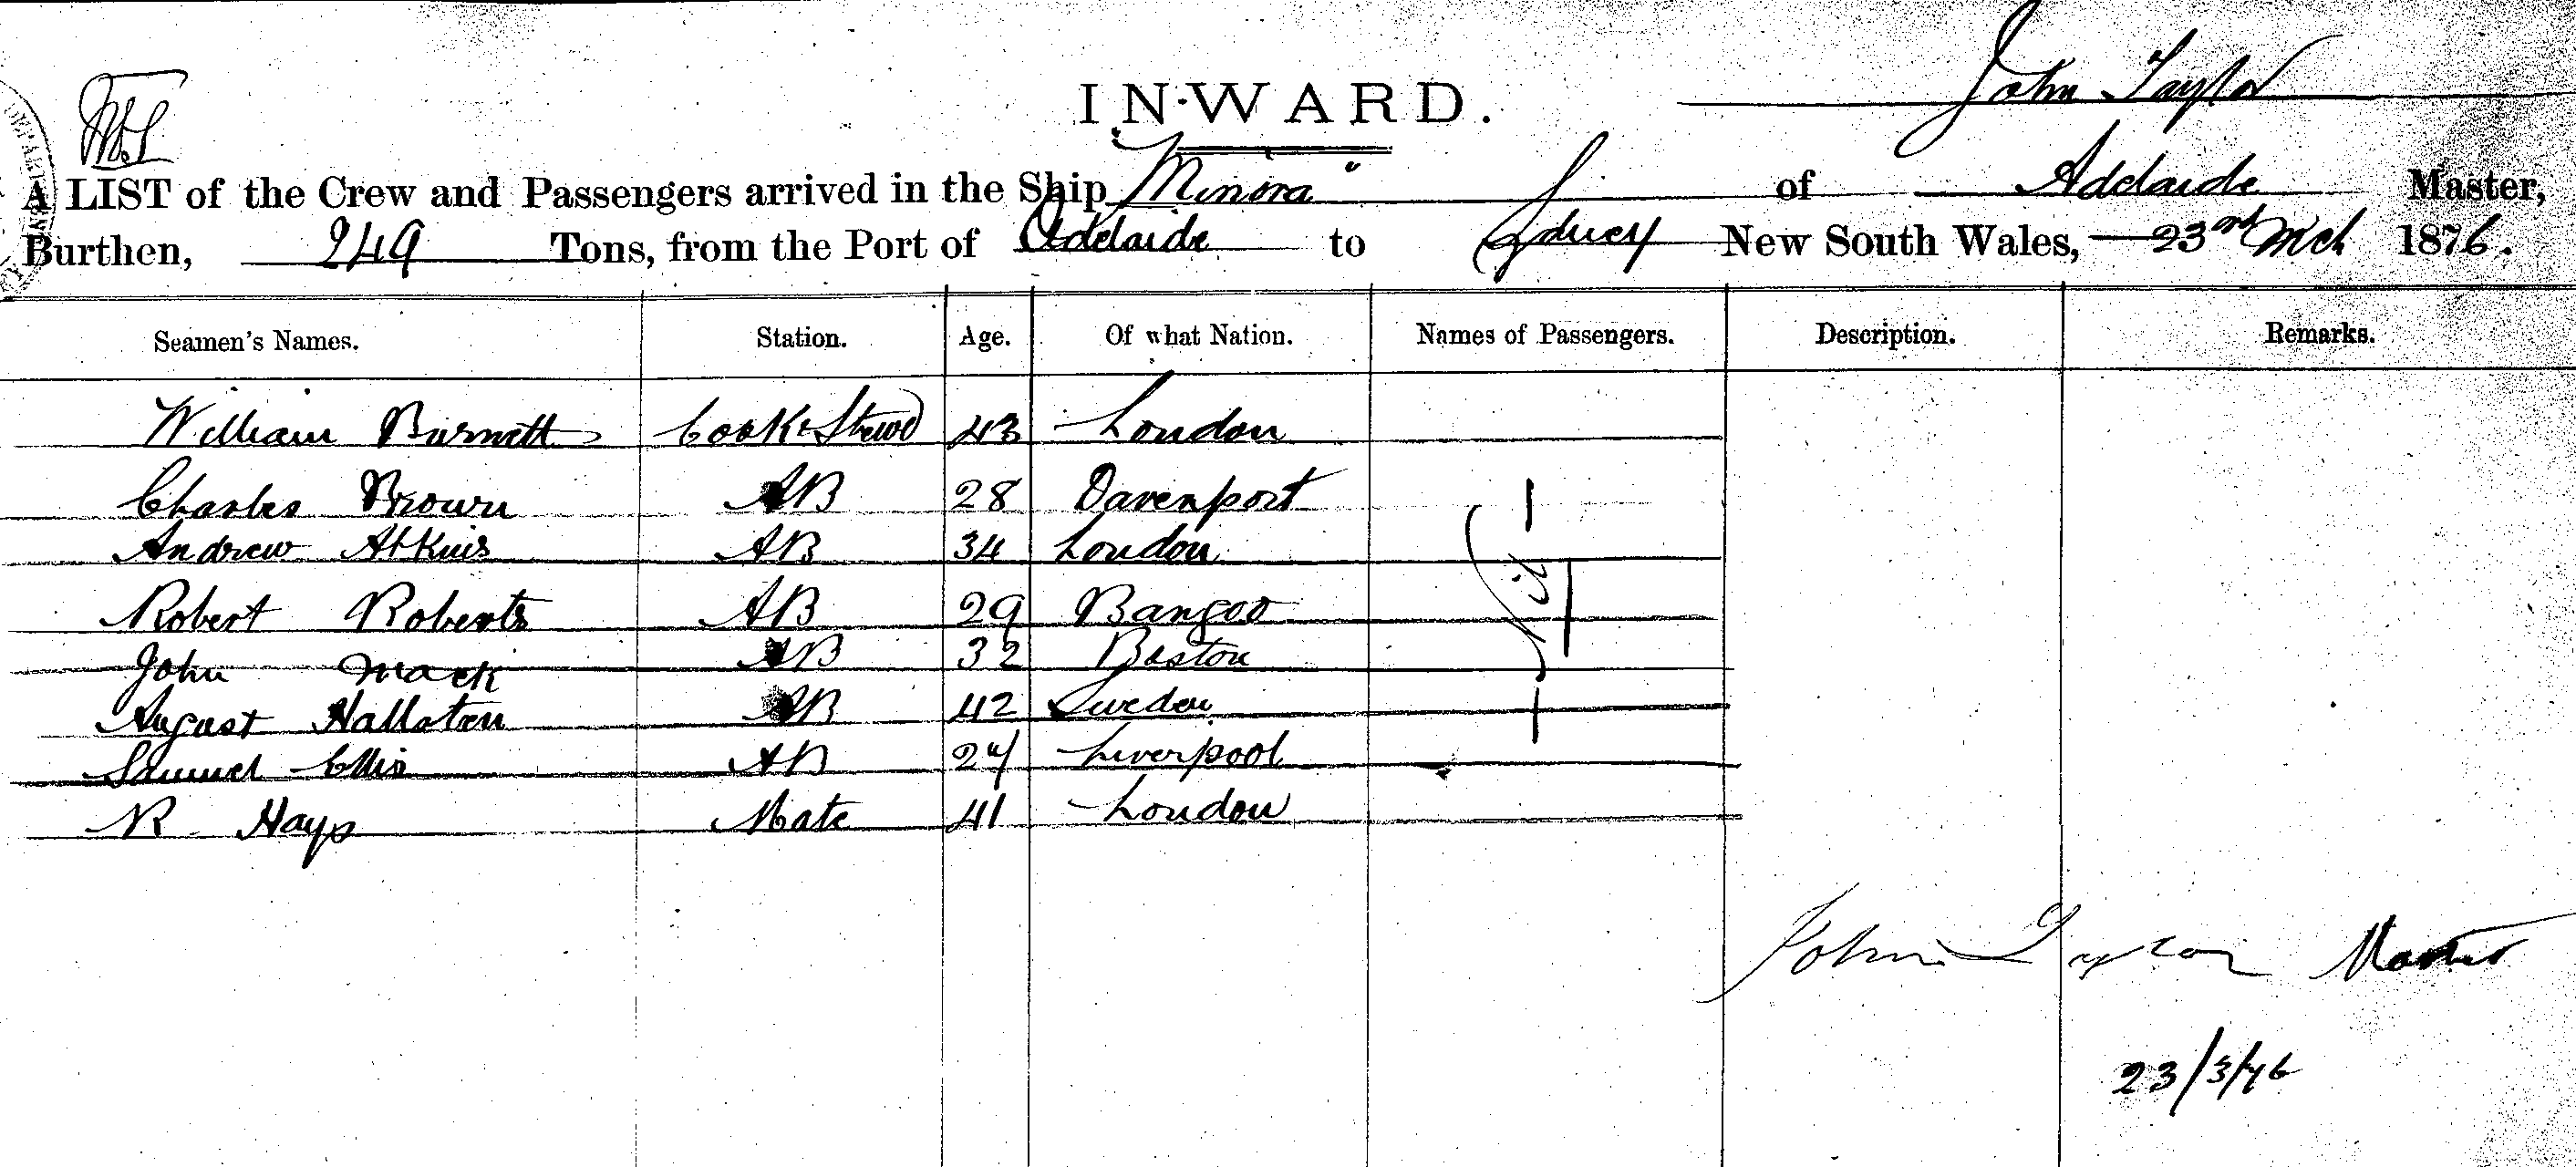 John Taylor
IN·WARD.
A LIST of the Crew and Passengers arrived in the Ship "Minora" of Adelaide Master,
Burthen, 249 Tons, from the Port of Adelaide to Sydney New South Wales, 23rd Mch 1876.
Seamen's Names. Station. Age. Of what Nation. Names of Passengers. Description. Remarks.
William Burnett Cook & Stewd 43 London
Charles Brown AB 28 Davenport
Andrew Atkins AB 34 London
Robert Roberts AB 29 Bangor
John Mack AB 32 Boston
August Hallston AB 42 Sweden
Samuel Ellis AB 24 Liverpool
R Hays Mate 41 London
Nil
John Taylor Master
23/3/76